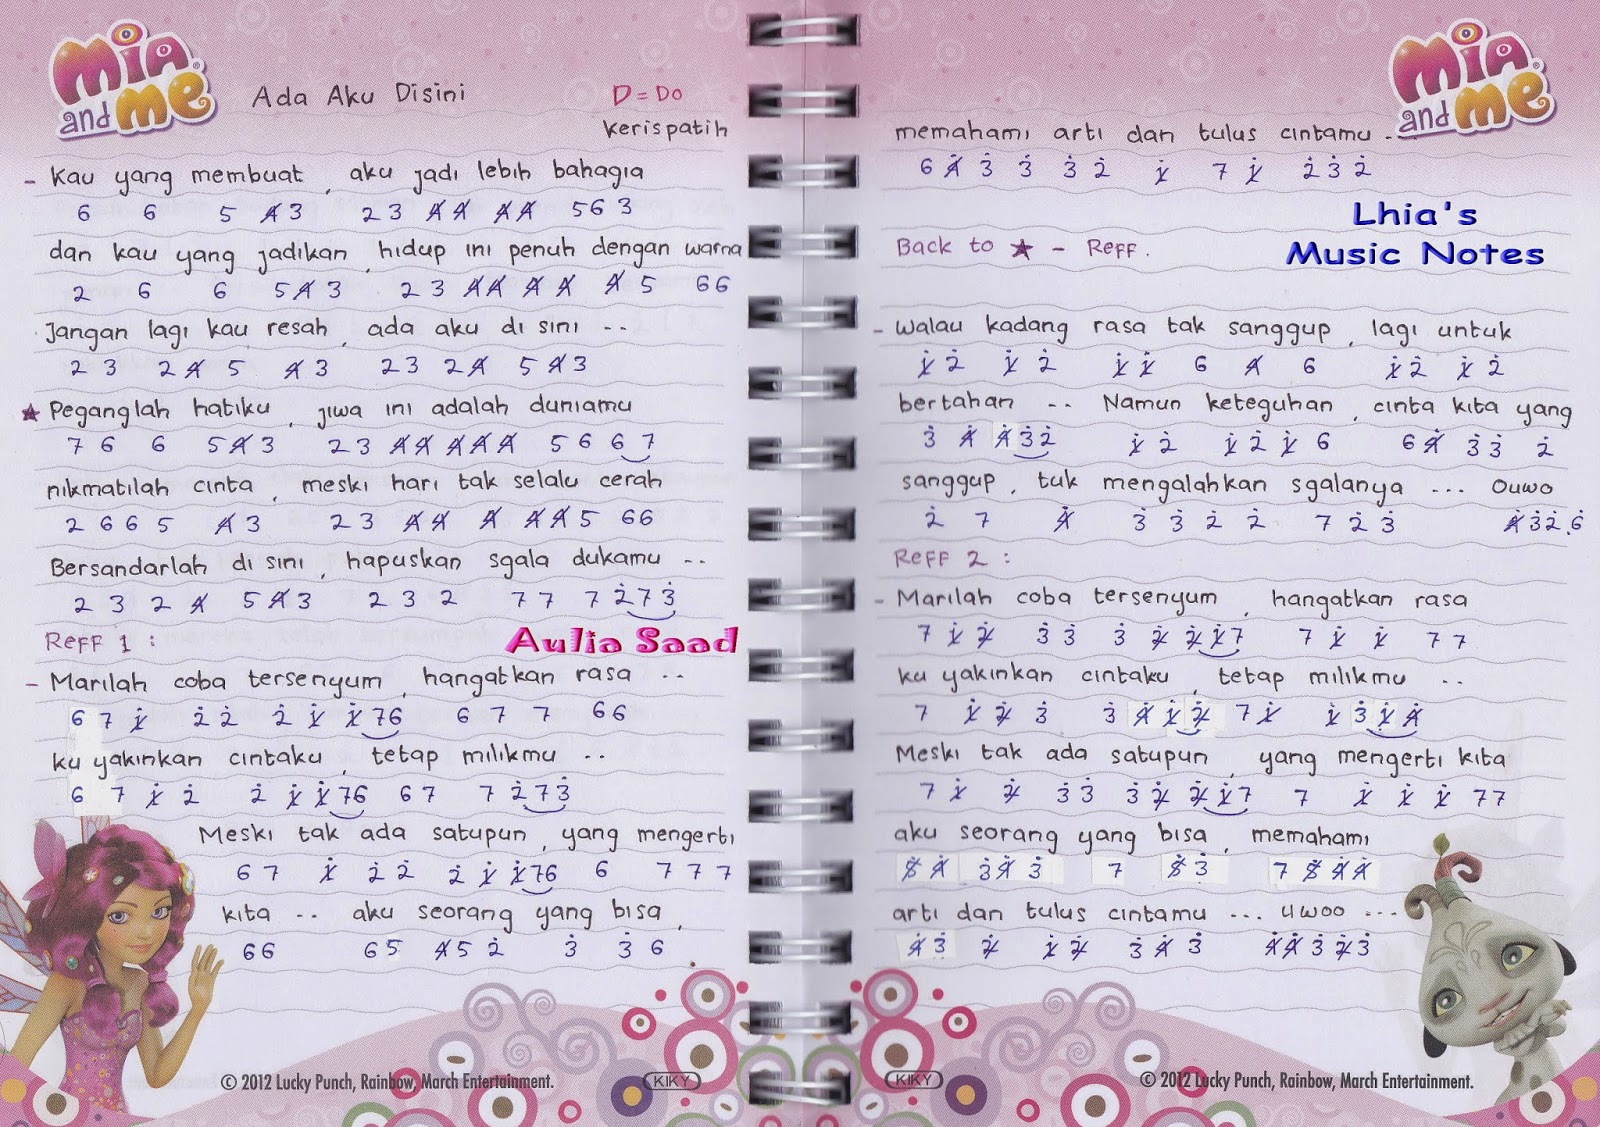 mia and me
Ada Aku Disini
D = Do
Kerispatih
- Kau yang membuat, aku jadi lebih bahagia
6 6 5 4̸ 3 2 3 4̸ 4̸ 4̸ 4̸ 5 6 3
dan kau yang jadikan, hidup ini penuh dengan warna
2 6 6 5 4̸ 3 2 3 4̸ 4̸ 4̸ 4̸ 4̸ 5 6 6
Jangan lagi kau resah, ada aku di sini ..
2 3 2 4̸ 5 4̸ 3 2 3 2 4̸ 5 4̸ 3
★ Peganglah hatiku, jiwa ini adalah duniamu
7 6 6 5 4̸ 3 2 3 4̸ 4̸ 4̸ 4̸ 4̸ 5 6 6 7
nikmatilah cinta, meski hari tak selalu cerah
2 6 6 5 4̸ 3 2 3 4̸ 4̸ 4̸ 4̸ 4̸ 5 6 6
Bersandarlah di sini, hapuskan sgala dukamu ..
2 3 2 4̸ 5 4̸ 3 2 3 2 7 7 7 2̇ 7 3̇
Reff 1 :
Aulia Saad
- Marilah coba tersenyum, hangatkan rasa ..
6 7 1̸̇ 2̇ 2̇ 2̇ 1̸̇ 1̸̇ 7 6 6 7 7 6 6
ku yakinkan cintaku, tetap milikmu ..
6 7 1̸̇ 2̇ 2̇ 1̸̇ 1̸̇ 7 6 6 7 7 2̇ 7 3̇
Meski tak ada satupun, yang mengerti
6 7 1̸̇ 2̇ 2̇ 2̇ 1̸̇ 1̸̇ 7 6 6 7 7 7
kita .. aku seorang yang bisa,
6 6 6 5 4̸ 5 2̇ 3̇ 3̇ 6
© 2012 Lucky Punch, Rainbow, March Entertainment.
KIKY
mia and me
memahami arti dan tulus cintamu ..
6 4̸̇ 3̇ 3̇ 3̇ 2̇ 1̸̇ 7 1̸̇ 2̇ 3̇ 2̇
Lhia's
Music Notes
Back to ★ - Reff.
- Walau kadang rasa tak sanggup, lagi untuk
1̸̇ 2̇ 1̸̇ 2̇ 1̸̇ 1̸̇ 6 4̸ 6 1̸̇ 2̇ 1̸̇ 2̇
bertahan .. Namun keteguhan, cinta kita yang
3̇ 4̸̇ 4̸̇ 3̇ 2̇ 1̸̇ 2̇ 1̸̇ 2̇ 1̸̇ 6 6 4̸̇ 3̇ 3̇ 2̇
sanggup, tuk mengalahkan sgalanya ... Ouwo
2̇ 7 4̸̇ 3̇ 3̇ 2̇ 2̇ 7 2̇ 3̇ 4̸̇ 3̇ 2̇ 6̇
Reff 2 :
- Marilah coba tersenyum, hangatkan rasa
7 1̸̇ 2̸̇ 3̇ 3̇ 3̇ 2̸̇ 2̸̇ 1̸̇ 7 7 1̸̇ 1̸̇ 7 7
ku yakinkan cintaku, tetap milikmu ..
7 1̸̇ 2̸̇ 3̇ 3̇ 4̸̇ 1̸̇ 2̸̇ 7 1̸̇ 1̸̇ 3̇ 1̸̇ 4̸̇
Meski tak ada satupun, yang mengerti kita
7 1̸̇ 2̸̇ 3̇ 3̇ 3̇ 2̸̇ 2̸̇ 1̸̇ 7 7 1̸̇ 1̸̇ 1̸̇ 7 7
aku seorang yang bisa, memahami
5̸ 4̸̇ 3̇ 4̸̇ 3̇ 7 5̸̇ 3̇ 7 5̸̇ 4̸̇ 4̸̇
arti dan tulus cintamu ... uwoo ...
4̸̇ 3̇ 2̸̇ 1̸̇ 2̸̇ 3̇ 4̸̇ 3̇ 4̸̇ 4̸̇ 3̇ 2̸̇ 3̇
© 2012 Lucky Punch, Rainbow, March Entertainment.
KIKY